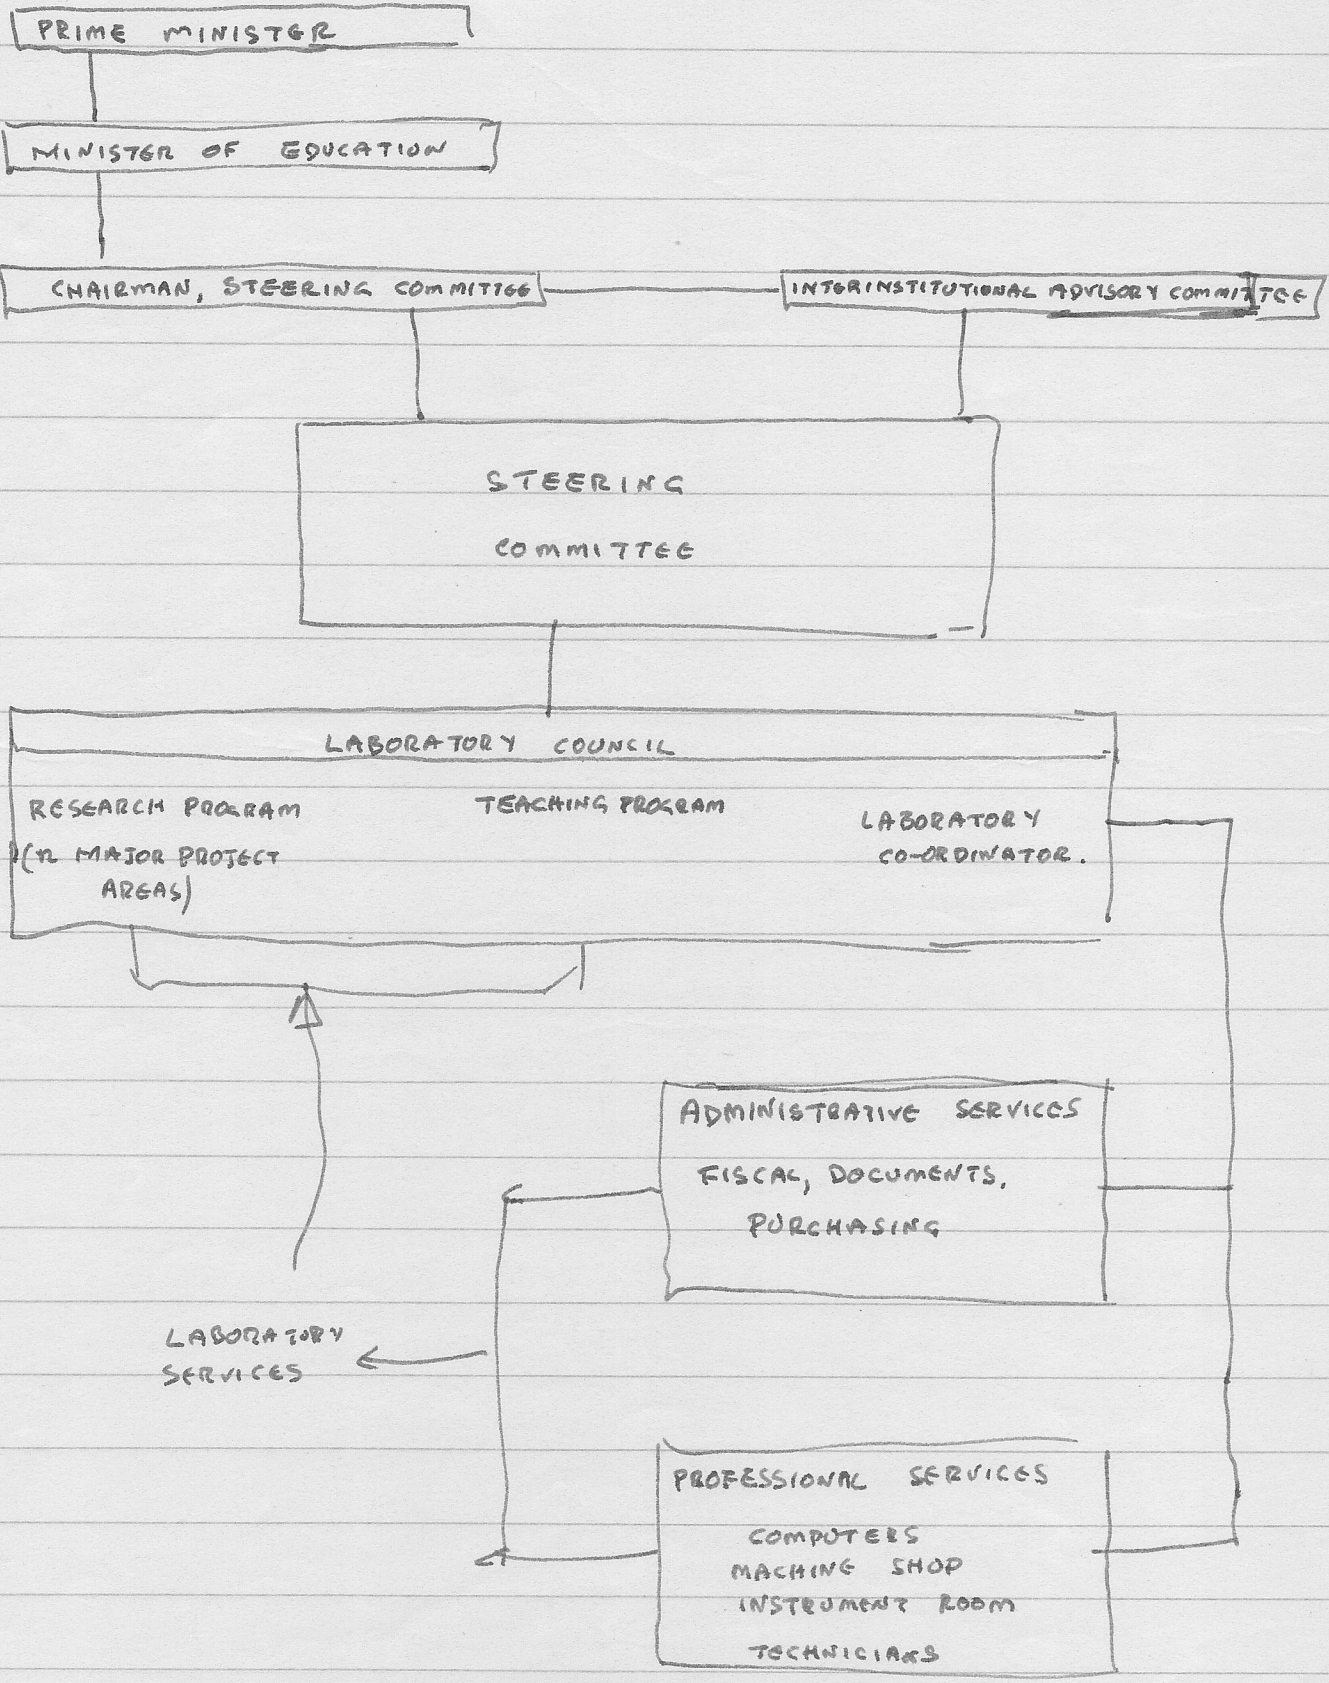 PRIME MINISTER
MINISTER OF EDUCATION
CHAIRMAN, STEERING COMMITTEE
INTERINSTITUTIONAL ADVISORY COMMITTEE
STEERING
COMMITTEE
LABORATORY COUNCIL
RESEARCH PROGRAM
(n MAJOR PROJECT
AREAS)
TEACHING PROGRAM
LABORATORY
CO-ORDINATOR.
ADMINISTRATIVE SERVICES
FISCAL, DOCUMENTS,
PURCHASING
LABORATORY
SERVICES
PROFESSIONAL SERVICES
COMPUTERS
MACHINE SHOP
INSTRUMENT ROOM
TECHNICIANS